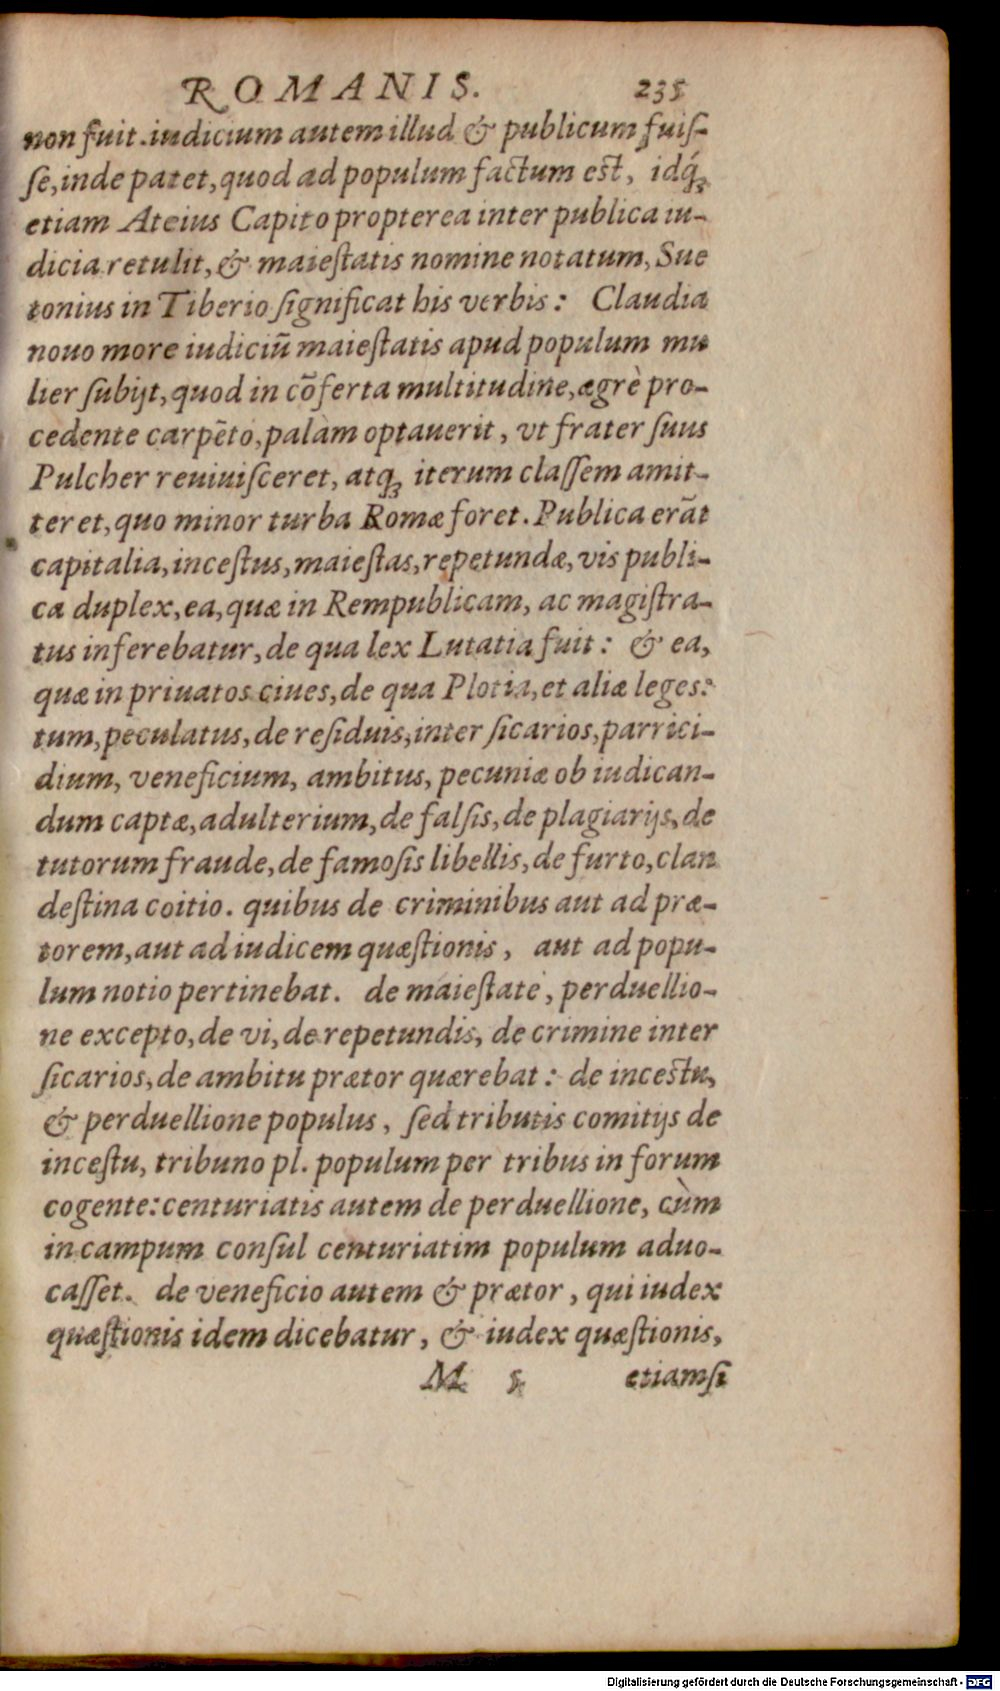 ROMANIS. 235
non fuit. iudicium autem illud & publicum fuiſ-
ſe, inde patet, quod ad populum factum est, idq́ꝫ
etiam Ateius Capito propterea inter publica iu-
dicia retulit, & maieſtatis nomine notatum, Sue
tonius in Tiberio ſignificat his verbis: Claudia
nouo more iudiciũ maieſtatis apud populum mu
lier ſubijt, quod in cõferta multitudine, ægrè pro-
cedente carpẽto, palàm optauerit, vt frater ſuus
Pulcher reuiuiſceret, atqꝫ iterum claſſem amit-
teret, quo minor turba Romæ foret. Publica erãt
capitalia, inceſtus, maieſtas, repetundæ, vis publi-
ca duplex, ea, quæ in Rempublicam, ac magiſtra-
tus inferebatur, de qua lex Lutatia fuit: & ea,
quæ in priuatos ciues, de qua Plotia, et aliæ leges:
tum, peculatus, de reſiduis, inter ſicarios, parrici-
dium, veneficium, ambitus, pecuniæ ob iudican-
dum captæ, adulterium, de falſis, de plagiarijs, de
tutorum fraude, de famoſis libellis, de furto, clan
deſtina coitio. quibus de criminibus aut ad præ-
torem, aut ad iudicem quæſtionis, aut ad popu-
lum notio pertinebat. de maieſtate, perduellio-
ne excepto, de vi, de repetundis, de crimine inter
ſicarios, de ambitu prætor quærebat: de incestu,
& perduellione populus, ſed tributis comitijs de
inceſtu, tribuno pl. populum per tribus in forum
cogente: centuriatis autem de perduellione, cùm
in campum conſul centuriatim populum aduo-
caſſet. de veneficio autem & prætor, qui iudex
quæſtionis idem dicebatur, & iudex quæſtionis,
M 5 etiamſi
Digitalisierung gefördert durch die Deutsche Forschungsgemeinschaft - DFG